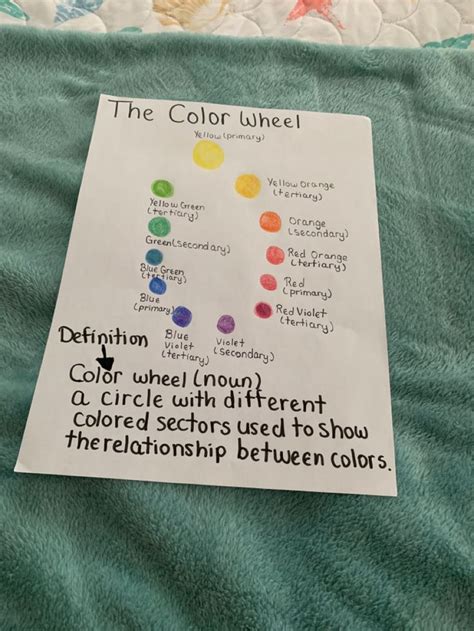 The Color Wheel
Yellow (primary)
Yellow Orange
(tertiary)
Yellow Green
(tertiary)
Orange
(secondary)
Green (secondary)
Red Orange
(tertiary)
Blue Green
(tertiary)
Red
(primary)
Blue
(primary)
Red Violet
(tertiary)
Blue
Violet
(tertiary)
Violet
(secondary)
Definition
Color wheel (noun)
a circle with different
colored sectors used to show
the relationship between colors.